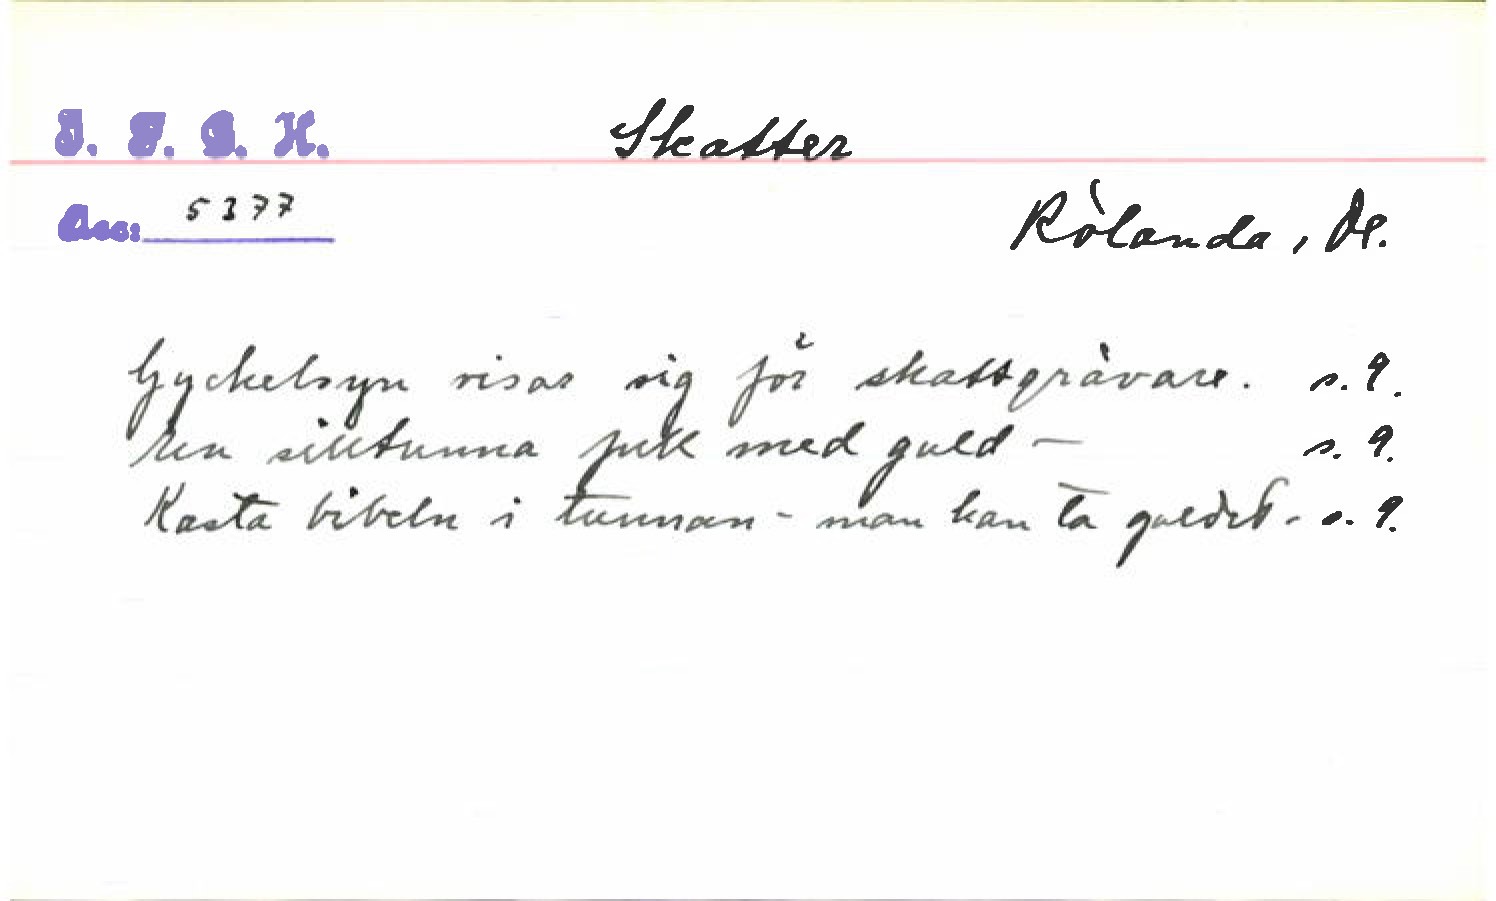 I. F. G. H. Skatter
Acc: 5377 Rölanda, Dl.
Gyckelsyn visas sig för skattgrävare. s. 9.
En silltunna full med guld — s. 9.
Kasta bibeln i tunnan - man kan ta guldet - s. 9.